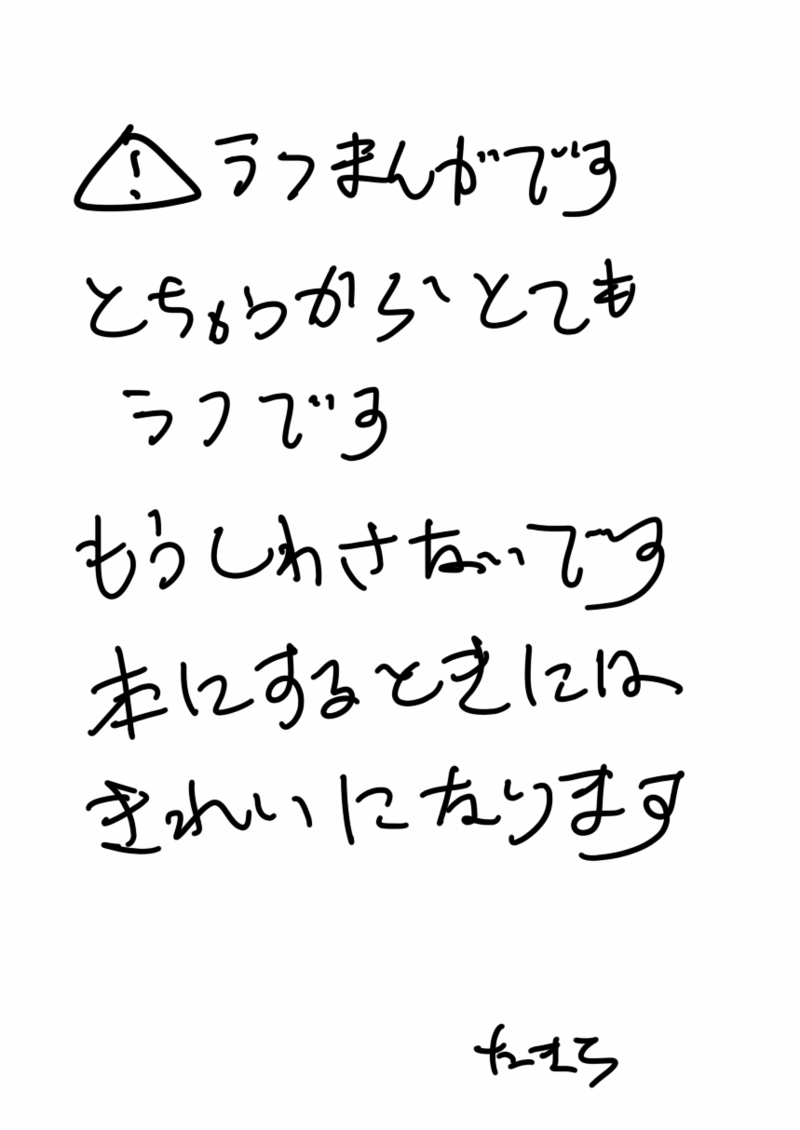 ⚠ラフまんがです
とちゅうから、とても
ラフです
もうしわさないです
本にするときには
きれいになります